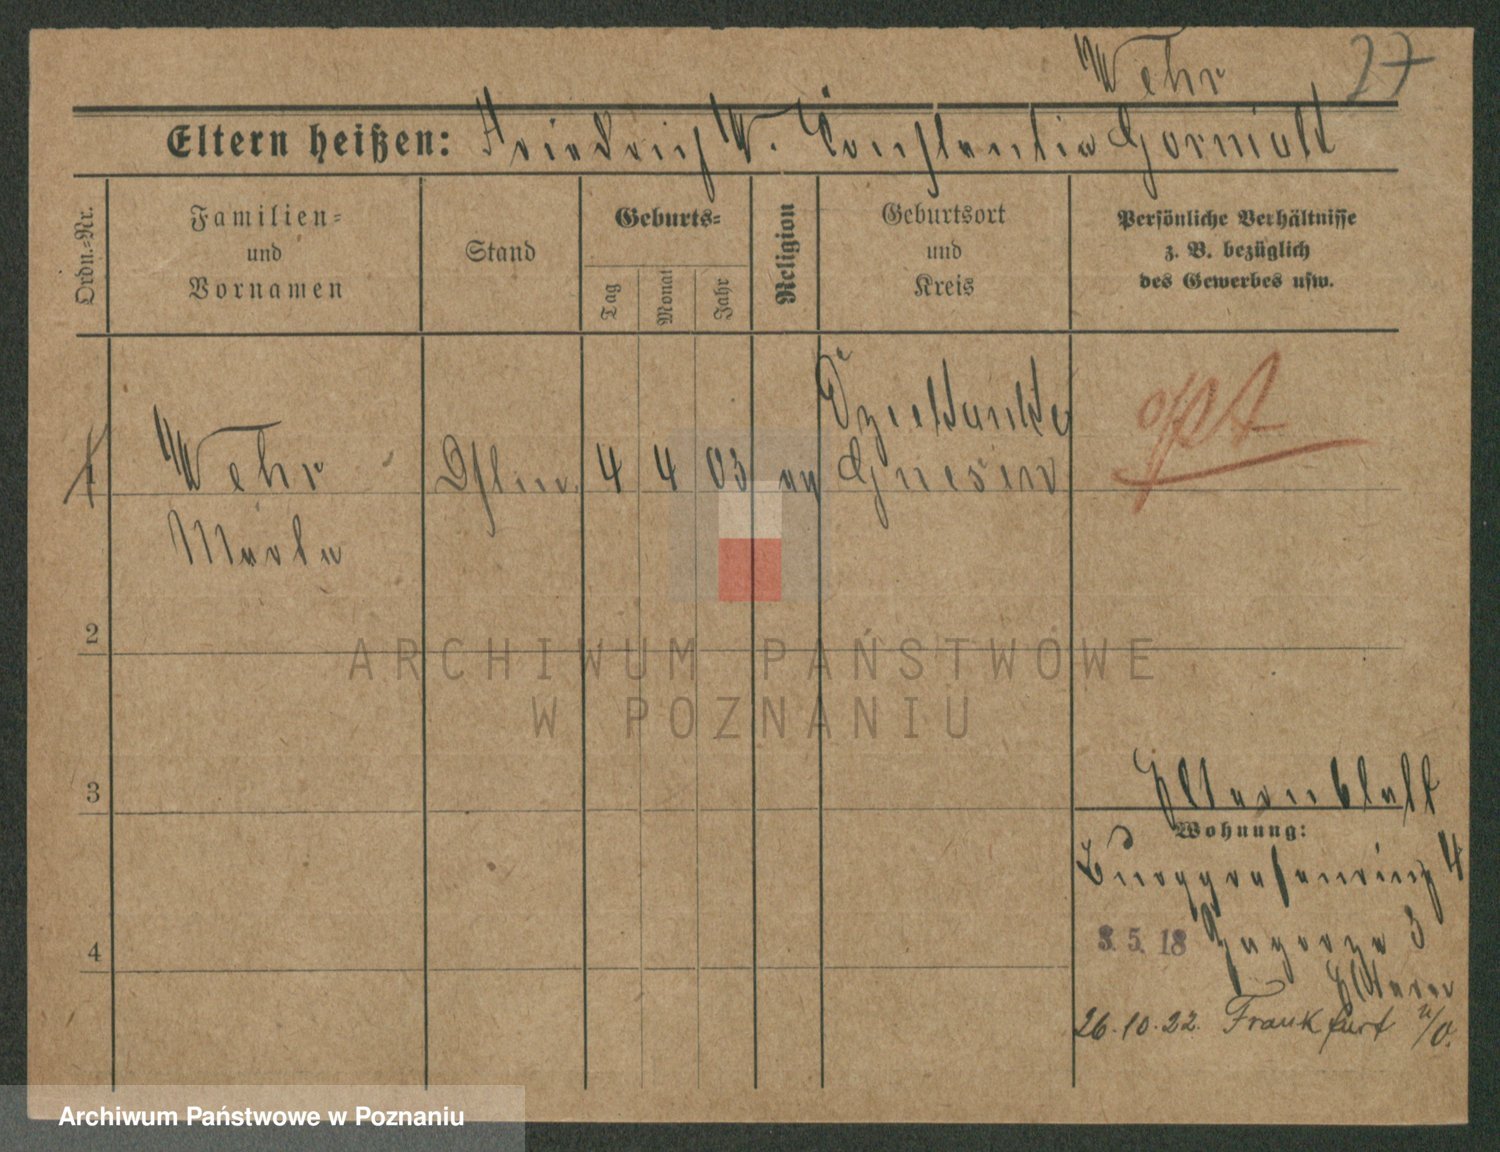 Wehr 27
Eltern heißen: Friedrich W. Constantia Gorniak
Ordn.=Nr.
Familien=
und
Vornamen
Stand
Geburts=
Tag
Monat
Jahr
Religion
Geburtsort
und
Kreis
Persönliche Verhältnisse
z. B. bezüglich
des Gewerbes usw.
1 Wehr 4 4 03 ev Dziekanka
Gnesen
opt
2
3
4
Elternblatt
Wohnung:
Burggrafenring 4
3. 5. 18 Zagorze 3
Eltern
26.10.22. Frankfurt a/O.
ARCHIWUM PAŃSTWOWE
W POZNANIU
Archiwum Państwowe w Poznaniu